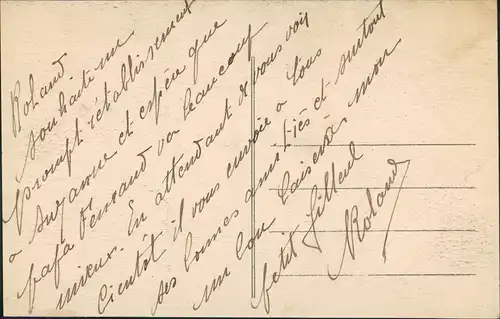 Roland
souhaite un
prompt rétablissement
a Suzanne et espère que
papa Fernand va beaucoup
mieux. En attendant de vous voir
bientôt il vous envoie a tous
ses bonnes amitiés et surtout
un bon baiser a mon
petit filleul
Roland